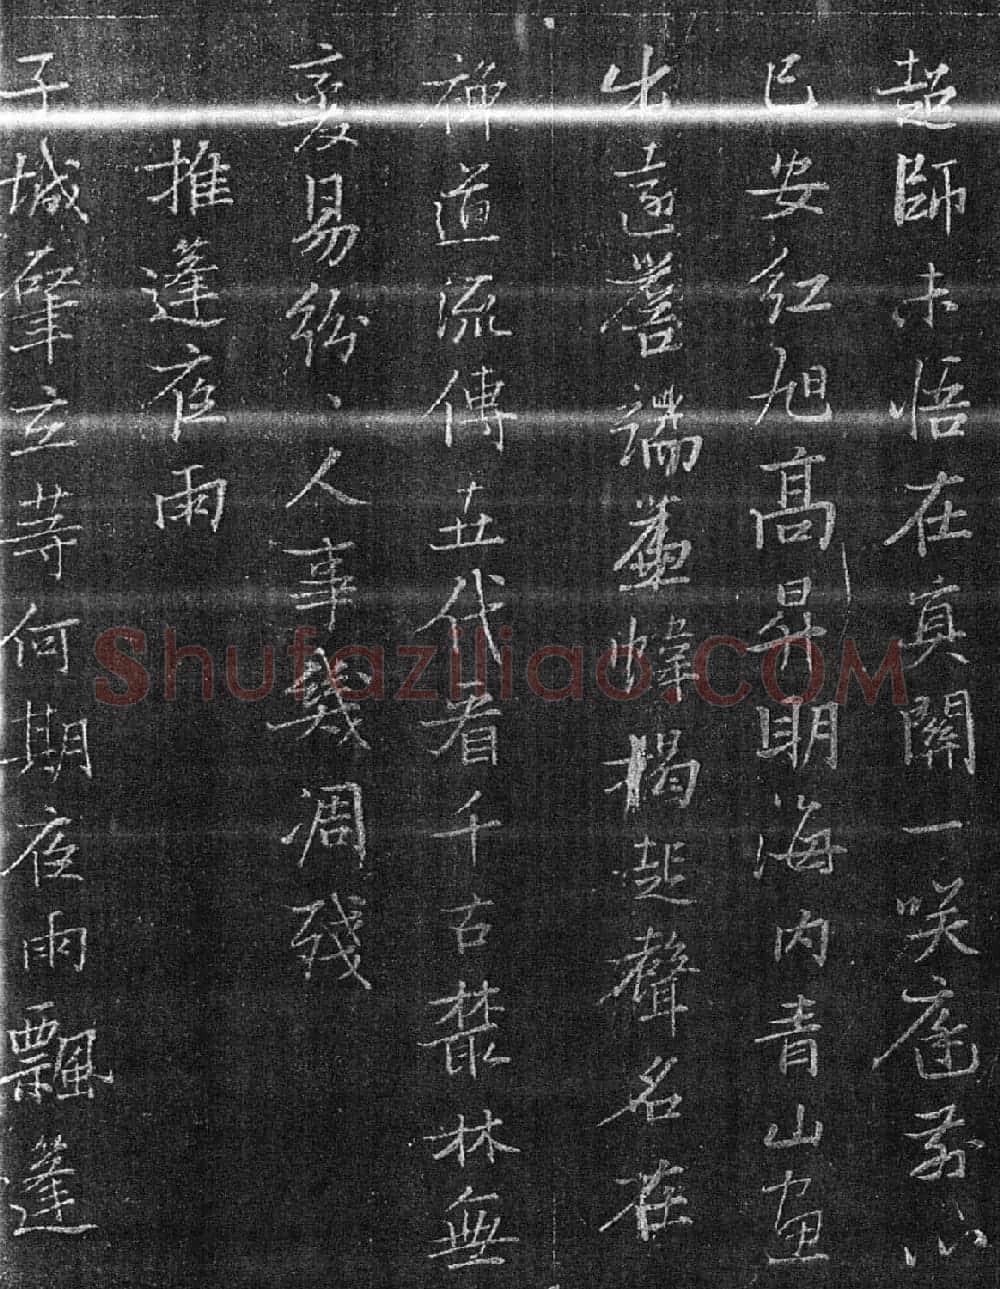 超師未悟在真關一笑庭前心
已安紅旭高昇明海内青山畫
出遠簷端簾幃揭起聲名在
禪道流傳五代看千古叢林無
変易紛、人事幾凋殘
推篷夜雨
子城肇立等何期夜雨飄篷
Shufaziliao.COM